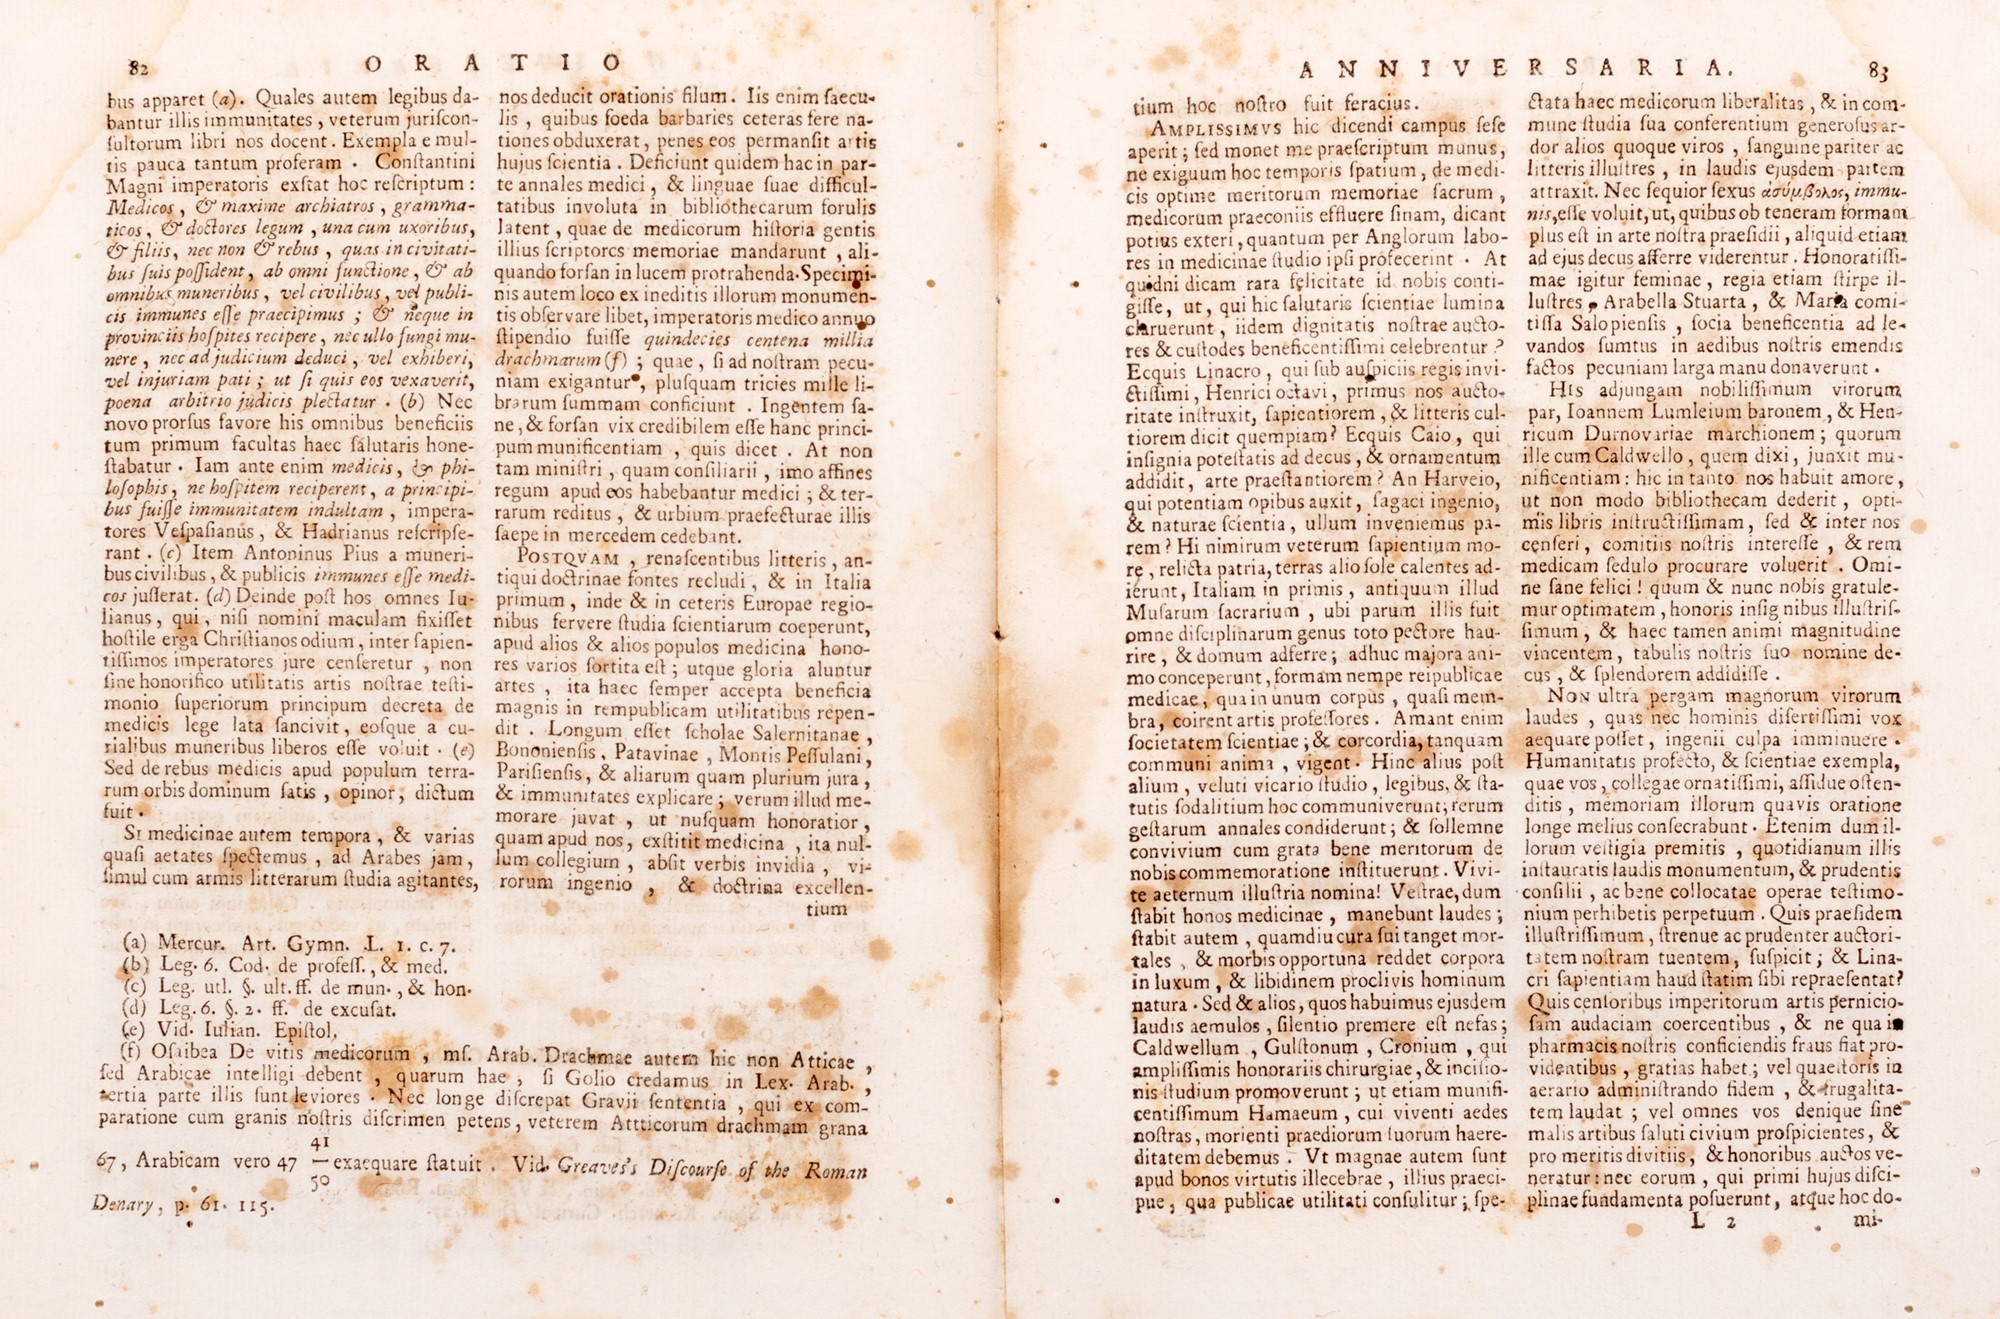 82 ORATIO
bus apparet (a). Quales autem legibus da-
bantur illis immunitates, veterum juriscon-
sultorum libri nos docent. Exempla e mul-
tis pauca tantum proferam. Constantini
Magni imperatoris exstat hoc rescriptum:
Medicos, & maxime archiatros, gramma-
ticos, & doctores legum, una cum uxoribus,
& filiis, nec non & rebus, quas in civitati-
bus suis possident, ab omni functione, & ab
omnibus muneribus, vel civilibus, vel publi-
cis immunes esse praecipimus; & neque in
provinciis hospites recipere, nec ullo fungi mu-
nere, nec ad judicium deduci, vel exhiberi,
vel injuriam pati; ut si quis eos vexaverit,
poena arbitrio judicis plectatur. (b) Nec
novo prorsus favore his omnibus beneficiis
tum primum facultas haec salutaris hone-
stabatur. Iam ante enim medicis, & phi-
losophis, ne hospitem reciperent, a principi-
bus fuisse immunitatem indultam, impera-
tores Vespasianus, & Hadrianus rescripse-
rant. (c) Item Antoninus Pius a muneri-
bus civilibus, & publicis immunes esse medi-
cos jusserat. (d) Deinde post hos omnes Iu-
lianus, qui, nisi nomini maculam fixisset
hostile erga Christianos odium, inter sapien-
tissimos imperatores jure censeretur, non
sine honorifico utilitatis artis nostrae testi-
monio superiorum principum decreta de
medicis lege lata sancivit, eosque a cu-
rialibus muneribus liberos esse voluit. (e)
Sed de rebus medicis apud populum terra-
rum orbis dominum satis, opinor, dictum
fuit.
SI medicinae autem tempora, & varias
quasi aetates spectemus, ad Arabes jam,
simul cum armis litterarum studia agitantes,
nos deducit orationis filum. Iis enim saecu-
lis, quibus foeda barbaries ceteras fere na-
tiones obduxerat, penes eos permansit artis
hujus scientia. Deficiunt quidem hac in par-
te annales medici, & linguae suae difficul-
tatibus involuta in bibliothecarum forulis
latent, quae de medicorum historia gentis
illius scriptores memoriae mandarunt, ali-
quando forsan in lucem protrahenda. Specimi-
nis autem loco ex ineditis illorum monumen-
tis observare libet, imperatoris medico annuo
stipendio fuisse quindecies centena millia
drachmarum (f); quae, si ad nostram pecu-
niam exigantur, plusquam tricies mille li-
brarum summam conficiunt. Ingentem sa-
ne, & forsan vix credibilem esse hanc princi-
pum munificentiam, quis dicet. At non
tam ministri, quam consiliarii, imo affines
regum apud eos habebantur medici; & ter-
rarum reditus, & urbium praefecturae illis
saepe in mercedem cedebant.
POSTQVAM, renascentibus litteris, an-
tiqui doctrinae fontes recludi, & in Italia
primum, inde & in ceteris Europae regio-
nibus fervere studia scientiarum coeperunt,
apud alios & alios populos medicina hono-
res varios sortita est; utque gloria aluntur
artes, ita haec semper accepta beneficia
magnis in rempublicam utilitatibus repen-
dit. Longum esset scholae Salernitanae,
Bononiensis, Patavinae, Montis Pessulani,
Parisiensis, & aliarum quam plurium jura,
& immunitates explicare; verum illud me-
morare juvat, ut nusquam honoratior,
quam apud nos, exstitit medicina, ita nul-
lum collegium, absit verbis invidia, vi-
rorum ingenio, & doctrina excellen-
tium
(a) Mercur. Art. Gymn. L. 1. c. 7.
(b) Leg. 6. Cod. de profess., & med.
(c) Leg. utl. §. ult. ff. de mun., & hon.
(d) Leg. 6. §. 2. ff. de excusat.
(e) Vid. Iulian. Epistol.
(f) Osaibea De vitis medicorum, ms. Arab. Drachmae autem hic non Atticae,
sed Arabicae intelligi debent, quarum hae, si Golio credamus in Lex. Arab.,
tertia parte illis sunt leviores. Nec longe discrepat Gravii sententia, qui ex com-
paratione cum granis nostris discrimen petens, veterem Attticorum drachmam grana
67, Arabicam vero 47 41/50 exaequare statuit. Vid. Greaves's Discourse of the Roman
Denary, p. 61. 115.
ANNIVERSARIA. 83
tium hoc nostro fuit feracius.
AMPLISSIMVS hic dicendi campus sese
aperit; sed monet me praescriptum munus,
ne exiguum hoc temporis spatium, de medi-
cis optime meritorum memoriae sacrum,
medicorum praeconiis effluere sinam, dicant
potius exteri, quantum per Anglorum labo-
res in medicinae studio ipsi profecerint. At
quidni dicam rara felicitate id nobis conti-
gisse, ut, qui hic salutaris scientiae lumina
claruerunt, iidem dignitatis nostrae aucto-
res & custodes beneficentissimi celebrentur?
Ecquis Linacro, qui sub auspiciis regis invi-
ctissimi, Henrici octavi, primus nos aucto-
ritate instruxit, sapientiorem, & litteris cul-
tiorem dicit quempiam? Ecquis Caio, qui
insignia potestatis ad decus, & ornamentum
addidit, arte praestantiorem? An Harveio,
qui potentiam opibus auxit, sagaci ingenio,
& naturae scientia, ullum inveniemus pa-
rem? Hi nimirum veterum sapientium mo-
re, relicta patria, terras alio sole calentes ad-
ierunt, Italiam in primis, antiquum illud
Musarum sacrarium, ubi parum illis fuit
omne disciplinarum genus toto pectore hau-
rire, & domum adferre; adhuc majora ani-
mo conceperunt, formam nempe reipublicae
medicae, qua in unum corpus, quasi mem-
bra, coirent artis professores. Amant enim
societatem scientiae; & corcordia, tanquam
communi anima, vigent. Hinc alius post
alium, veluti vicario studio, legibus, & sta-
tutis sodalitium hoc communiverunt; rerum
gestarum annales condiderunt; & sollemne
convivium cum grata bene meritorum de
nobis commemoratione instituerunt. Vivi-
te aeternum illustria nomina! Vestrae, dum
stabit honos medicinae, manebunt laudes;
stabit autem, quamdiu cura sui tanget mor-
tales, & morbis opportuna reddet corpora
in luxum, & libidinem proclivis hominum
natura. Sed & alios, quos habuimus ejusdem
laudis aemulos, silentio premere est nefas;
Caldwellum, Gulstonum, Cronium, qui
amplissimis honorariis chirurgiae, & incisio-
nis studium promoverunt; ut etiam munifi-
centissimum Hamaeum, cui viventi aedes
nostras, morienti praediorum suorum haere-
ditatem debemus. Vt magnae autem sunt
apud bonos virtutis illecebrae, illius praeci-
pue, qua publicae utilitati consulitur; spe-
ctata haec medicorum liberalitas, & in com-
mune studia sua conferentium generosus ar-
dor alios quoque viros, sanguine pariter ac
litteris illustres, in laudis ejusdem partem
attraxit. Nec sequior sexus ασύμβολος, immu-
nis, esse voluit, ut, quibus ob teneram formam
plus est in arte nostra praesidii, aliquid etiam
ad ejus decus afferre viderentur. Honoratissi-
mae igitur feminae, regia etiam stirpe il-
lustres, Arabella Stuarta, & Maria comi-
tissa Salopiensis, socia beneficentia ad le-
vandos sumtus in aedibus nostris emendis
factos pecuniam larga manu donaverunt.
HIS adjungam nobilissimum virorum
par, Ioannem Lumleium baronem, & Hen-
ricum Durnovariae marchionem; quorum
ille cum Caldwello, quem dixi, junxit mu-
nificentiam: hic in tanto nos habuit amore,
ut non modo bibliothecam dederit, opti-
mis libris instructissimam, sed & inter nos
censeri, comitiis nostris interesse, & rem
medicam sedulo procurare voluerit. Omi-
ne sane felici! quum & nunc nobis gratule-
mur optimatem, honoris insignibus illustris-
simum, & haec tamen animi magnitudine
vincentem, tabulis nostris suo nomine de-
cus, & splendorem addidisse.
NON ultra pergam magnorum virorum
laudes, quas nec hominis disertissimi vox
aequare posset, ingenii culpa imminuere.
Humanitatis profecto, & scientiae exempla,
quae vos, collegae ornatissimi, assidue osten-
ditis, memoriam illorum quavis oratione
longe melius consecrabunt. Etenim dum il-
lorum vestigia premitis, quotidianum illis
instauratis laudis monumentum, & prudentis
consilii, ac bene collocatae operae testimo-
nium perhibetis perpetuum. Quis praesidem
illustrissimum, strenue ac prudenter auctori-
tatem nostram tuentem, suspicit; & Lina-
cri sapientiam haud statim sibi repraesentat?
Quis censoribus imperitorum artis pernicio-
sam audaciam coercentibus, & ne qua in
pharmacis nostris conficiendis fraus fiat pro-
videntibus, gratias habet; vel quaestoris in
aerario administrando fidem, & frugalita-
tem laudat; vel omnes vos denique sine
malis artibus saluti civium prospicientes, &
pro meritis divitiis, & honoribus auctos ve-
neratur: nec eorum, qui primi hujus disci-
plinae fundamenta posuerunt, atque hoc do-
L 2 mi-